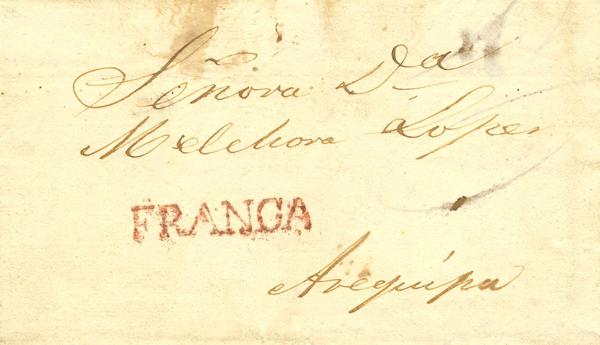 Señora Da
Melchora Lopes
FRANCA
Arequípa